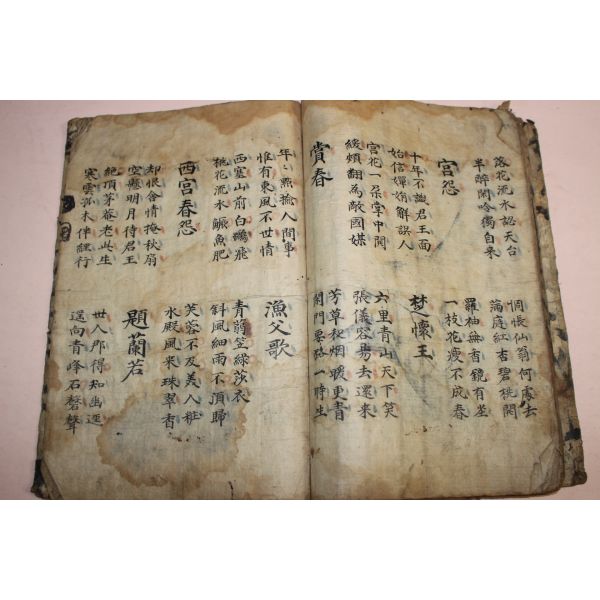 落花流水認天台
半醉閑吟獨自來
惆悵仙翁何處去
滿庭紅杏碧桃開
宮怨
羅袖無香鏡有塵
一枝花瘦不成春
十年不識君王面
始信嬋娟解誤人
楚懷王
宮花一朶掌中開
緩頰翻為敵國媒
六里青山天下笑
張儀容易去還來
賞春
芳草和烟暖更青
閑門要路一時生
年〻點撿人間事
惟有東風不世情
漁父歌
西塞山前白鷺飛
桃花流水鱖魚肥
青蒻笠綠莎衣
斜風細雨不須歸
西宮春怨
芙蓉不及美人粧
水殿風来珠翠香
却恨含情掩秋扇
空懸明月待君王
題蘭若
絶頂茅菴老此生
寒雲孤木伴經行
世人那得知幽逕
遥向青峰礼磬聲